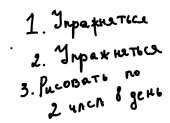 1. Упражняться
2. Упражняться
3. Рисовать по
2 часа в день